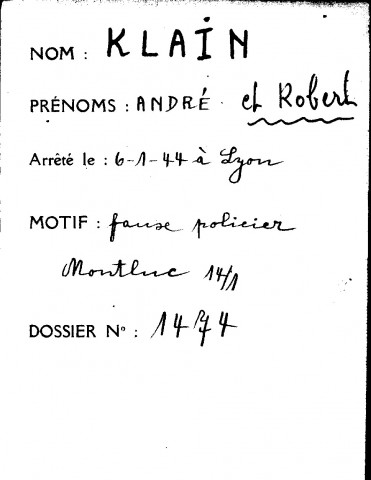 NOM : KLAIN
PRÉNOMS : ANDRÉ et Robert
Arrêté le : 6-1-44 à Lyon
MOTIF : fause policier
Montluc 14/1
DOSSIER Nº : 1474